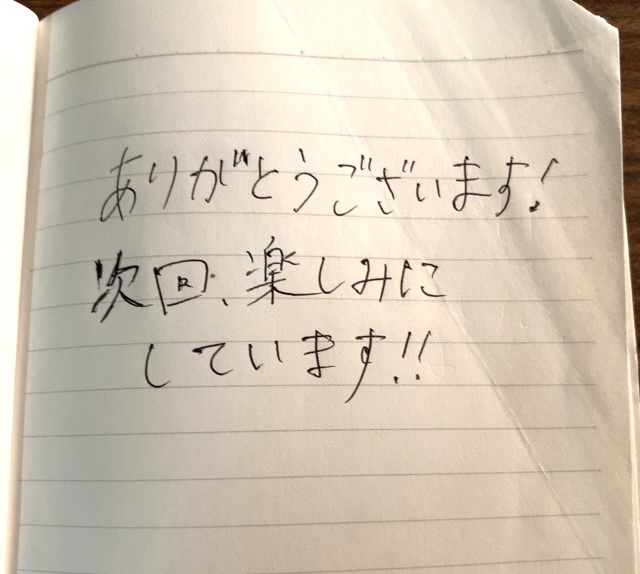 ありがとうございます!
次回、楽しみに
しています!!